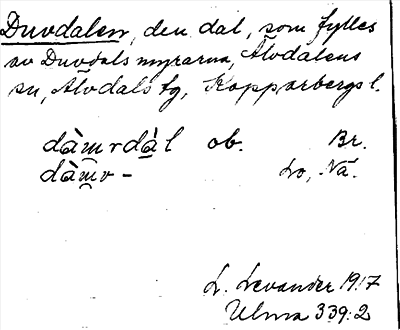 Duvdalen, den dal, som fylles
av Duvdalsmyrarna, Älvdalens
sn, Älvdals tg, Kopparbergs l.
dàm̯rdà̠l ob. Br.
dàm̯v - Lo, Nä.
L. Levander 1917
Ulma 339:2